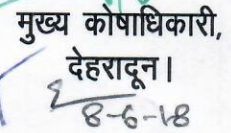 मुख्य कोषाधिकारी,
देहरादून।
8-6-18